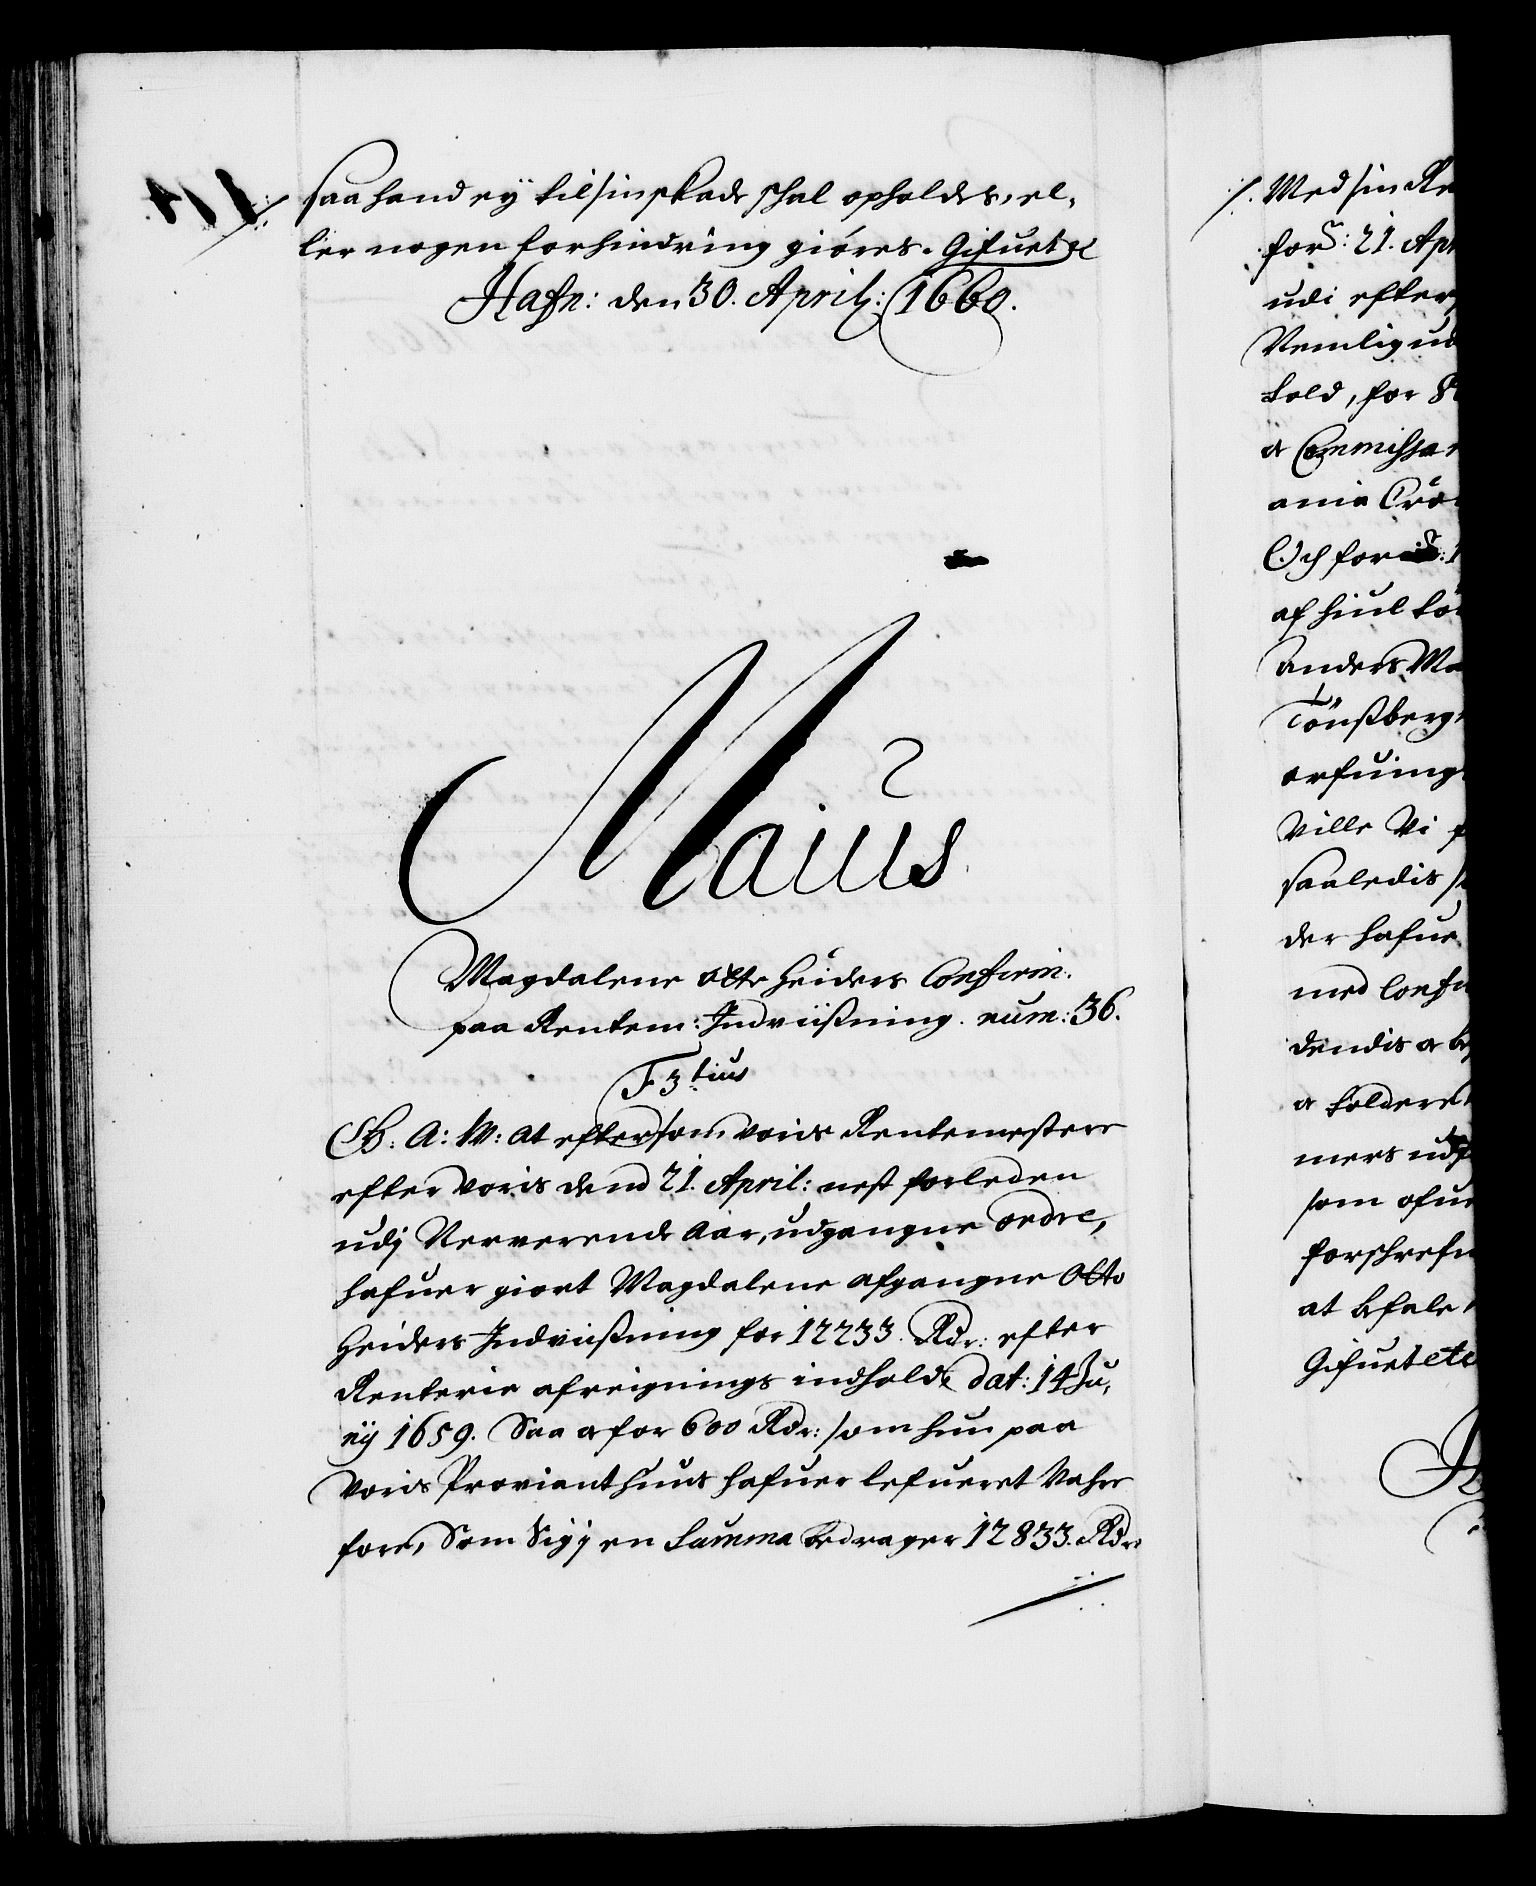 saa hand ey til sin skade schal opholdes, el,
ler nogen forhindring giöres. Gifuet etc
Hafn: den 30. April: 1660.
Maius
Magdalene Otte Heiders Confirm.
paa Rentem: Indviißning. num: 36.
F 3tius
G: A: W: at eftersom voris Rentemestere
efter voris dend 21. April: nest forleden
udj Nerverende Aar, udgangne ordre,
hafuer giort Magdalene afgangne Otto
Heiders Indviißning for 12233. Rdr: efter
Renterie afreignings indhold dat: 14 Ju,
nij 1659. Saa och for 600 Rdr: som hun paa
voris Provianthuus hafuer lefueret Vahre
fore, Som Sig j en Summa bedrager 12833. Rdr:
./. Med sin Re
for: 21. Apr
udi efter
Nemlig ud
told, for
och Commissar
ania
Och for
af hiul
Anders Ma
Tönßberg
arfuing
Ville Vi
saaledis
der hafue
med Conf
dendis och
och toldere
mers
som ofue
forschrefn
at befale
Gifuet etc